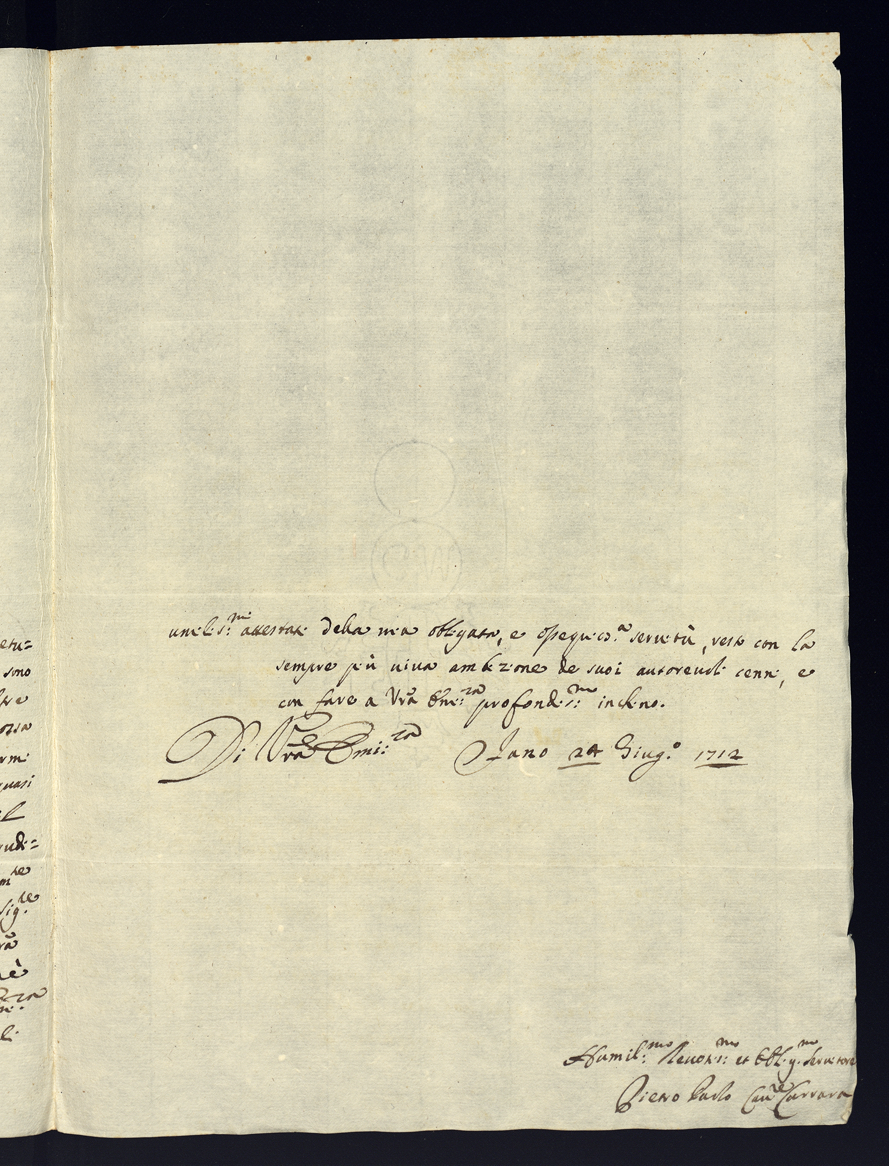 etu=
sono
umilis:mi attestati della mia obligata, e ossequios.a servitù, resto con la
sempre più viva ambizione de suoi autorevoli cenni, e
con fare a Vrã Emi:za profondis:mo inchino.
Di Vrã Emi:za Jano 24 Giug.o 1712
quasi
Humil:mo Devotis:mo et Obl.g.mo Servitore
Pietro Paolo Cau.re Carrara